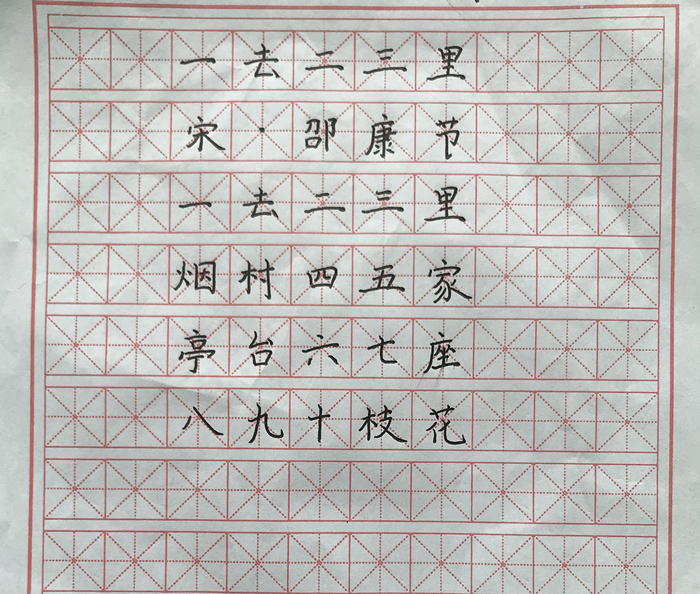 一去二三里
宋·邵康节
一去二三里
烟村四五家
亭台六七座
八九十枝花